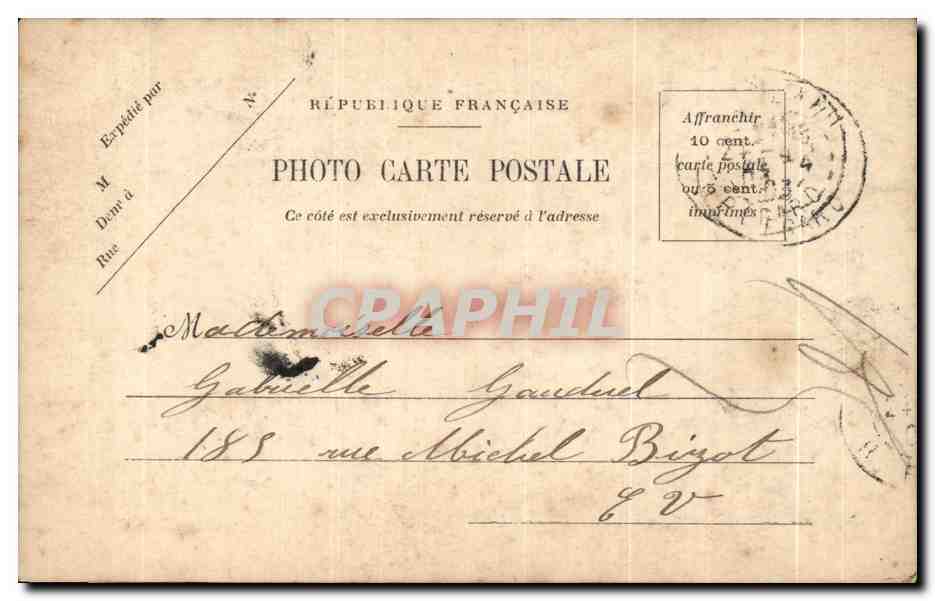 Expédié par
M
Demt à
Rue
N°
RÉPUBLIQUE FRANÇAISE
PHOTO CARTE POSTALE
Ce côté est exclusivement réservé à l'adresse
Affranchir
10 cent.
carte postale
ou 5 cent.
imprimés
CPAPHIL
Mademoiselle
Gabrielle Gauduel
185 rue Michel Bizot
E V